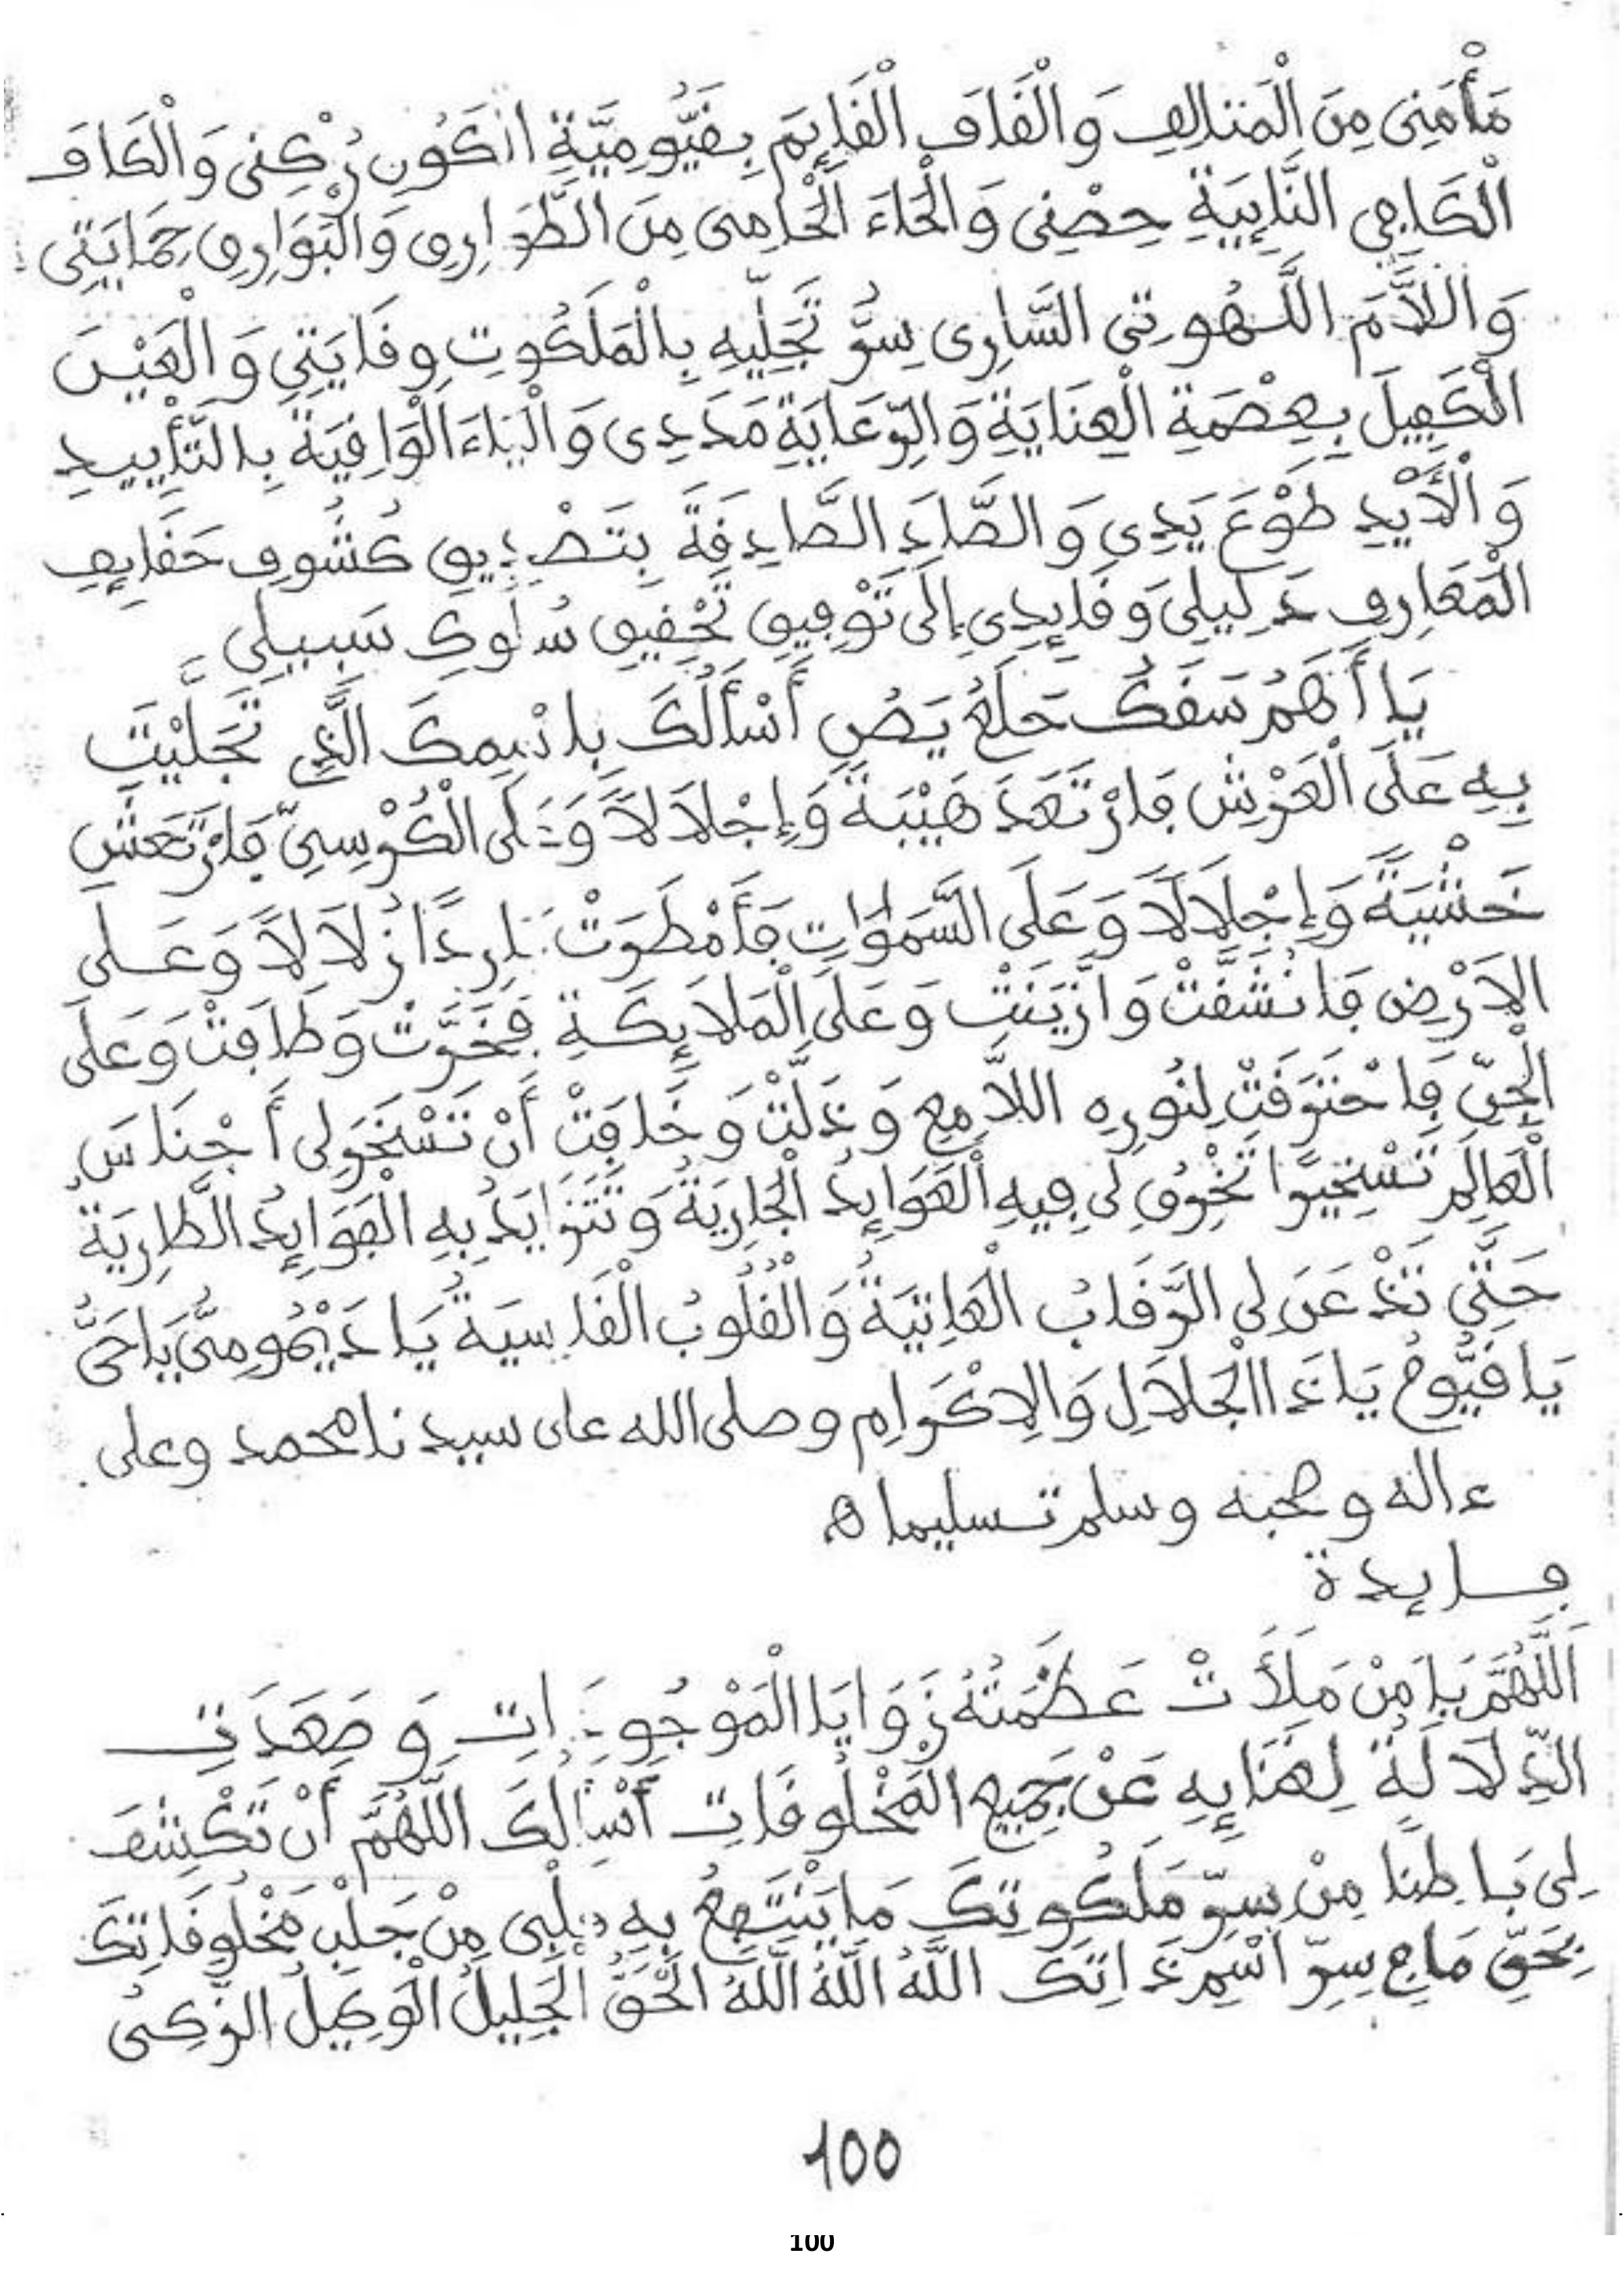 مَأْمَنِى مِنَ الْمَتَلِالِفِ وَالْقَافِ الْقَايِمِ بِقَيُّومِيَّةِ اتَكَوُنِ رُكْنِى وَالْكَافِ
الْكَافِى النَّايِبَةِ حِصْنِى وَالْحَاءَ الْحَامِى مِنَ الطَّوَارِقِ وَالْبَوَارِقِ حِمَايَتِى
وَاللاَّمَ اللَّهُوتِى السَّارِى سِرُّ تَجَلِّيهِ بِالْمَلَكُوتِ وِقَايَتِى وَالْعَيْنَ
الْكَفِيلَ بِعِصْمَةِ الْعِنَايَةِ وَالرِّعَايَةِ مَدَدِى وَالْيَاءَ الْوَافِيَةَ بِالتَّأْيِيدِ
وَالْأَيْدِ طَوْعَ يَدِى وَالصَّادَ الصَّادِقَةَ بِتَصْدِيقِ كُشُوفِ حَقَايِقِ
الْمَعَارِفِ دَلِيلِى وَقَايِدِى إِلَى تَوْفِيقِ تَحْقِيقِ سُلُوكِ سَبِيلِى
يَا أَهَمُ سَقَكُ حَلَعُ يَصُ أَسْأَلُكَ بِاسْمِكَ الَّذِى تَجَلَّيْتَ
بِهِ عَلَى الْعَرْشِ فَارْتَعَدَ هَيْبَةً وَإِجْلاَلاً وَعَلَى الْكُرْسِيِّ فَارْتَعَشَ
خَشْيَةً وَإِجْلاَلاً وَعَلَى السَّمَوَاتِ فَأَمْطَرَتْ بَارِدًا زُلاَلاً وَعَلَى
الاَرْضِ فَانْشَقَّتْ وَازَّيَنَتْ وَعَلَى الْمَلاَيِكَةِ فَخَرَّتْ وَطَافَتْ وَعَلَى
الْجِنِّ فَاحْتَرَقَتْ لِنُورِهِ اللاَّمِعِ وَذَلَّتْ وَخَافَتْ أَنْ تَسْخَرَ لِى أَجْنَاسَ
الْعَالَمِ تَسْخِيرًا تَخْرِقُ لِى فِيهِ الْعَوَايِدُ الْجَارِيَةُ وَتَتَزَايَدُ بِهِ الْفَوَايِدُ الطَّارِيَةُ
حَتَّى تَذْعَنَ لِى الرِّقَابُ الْعَاتِيَةُ وَالْقُلُوبُ الْقَاسِيَةُ يَا دَيْمُومِىُّ يَا حَىُّ
يَا قَيُّومُ يَا ذَا الْجَلاَلِ وَالاِكْرَامِ وصلى الله على سيدنا محمد وعلى
ءاله وصحبه وسلم تسليما ه
فايدة
اَللَّهُمَّ يَا مَنْ مَلَأَتْ عَظَمَتُهُ زَوَايَا الْمَوْجُودَاتِ وَصَعَدَتِ
الدِّلاَلَةُ لِغَنَايِهِ عَنْ جَمِيعِ الْمَخْلُوقَاتِ أَسْأَلُكَ اللَّهُمَّ أَنْ تَكْشِفَ
لِى بَاطِنًا مِنْ سِرِّ مَلَكُوتِكَ مَا يَنْتَفِعُ بِهِ قَلْبِى مِنْ جَلْبِ مَخْلُوقَاتِكَ
بِحَقِّ مَا فِى سِرِّ اسْمِ ذَاتِكَ اللَّهُ اللَّهُ اللَّهُ الْحَقُّ الْجَلِيلُ الْوَكِيلُ الزَّكِىُّ
100
100